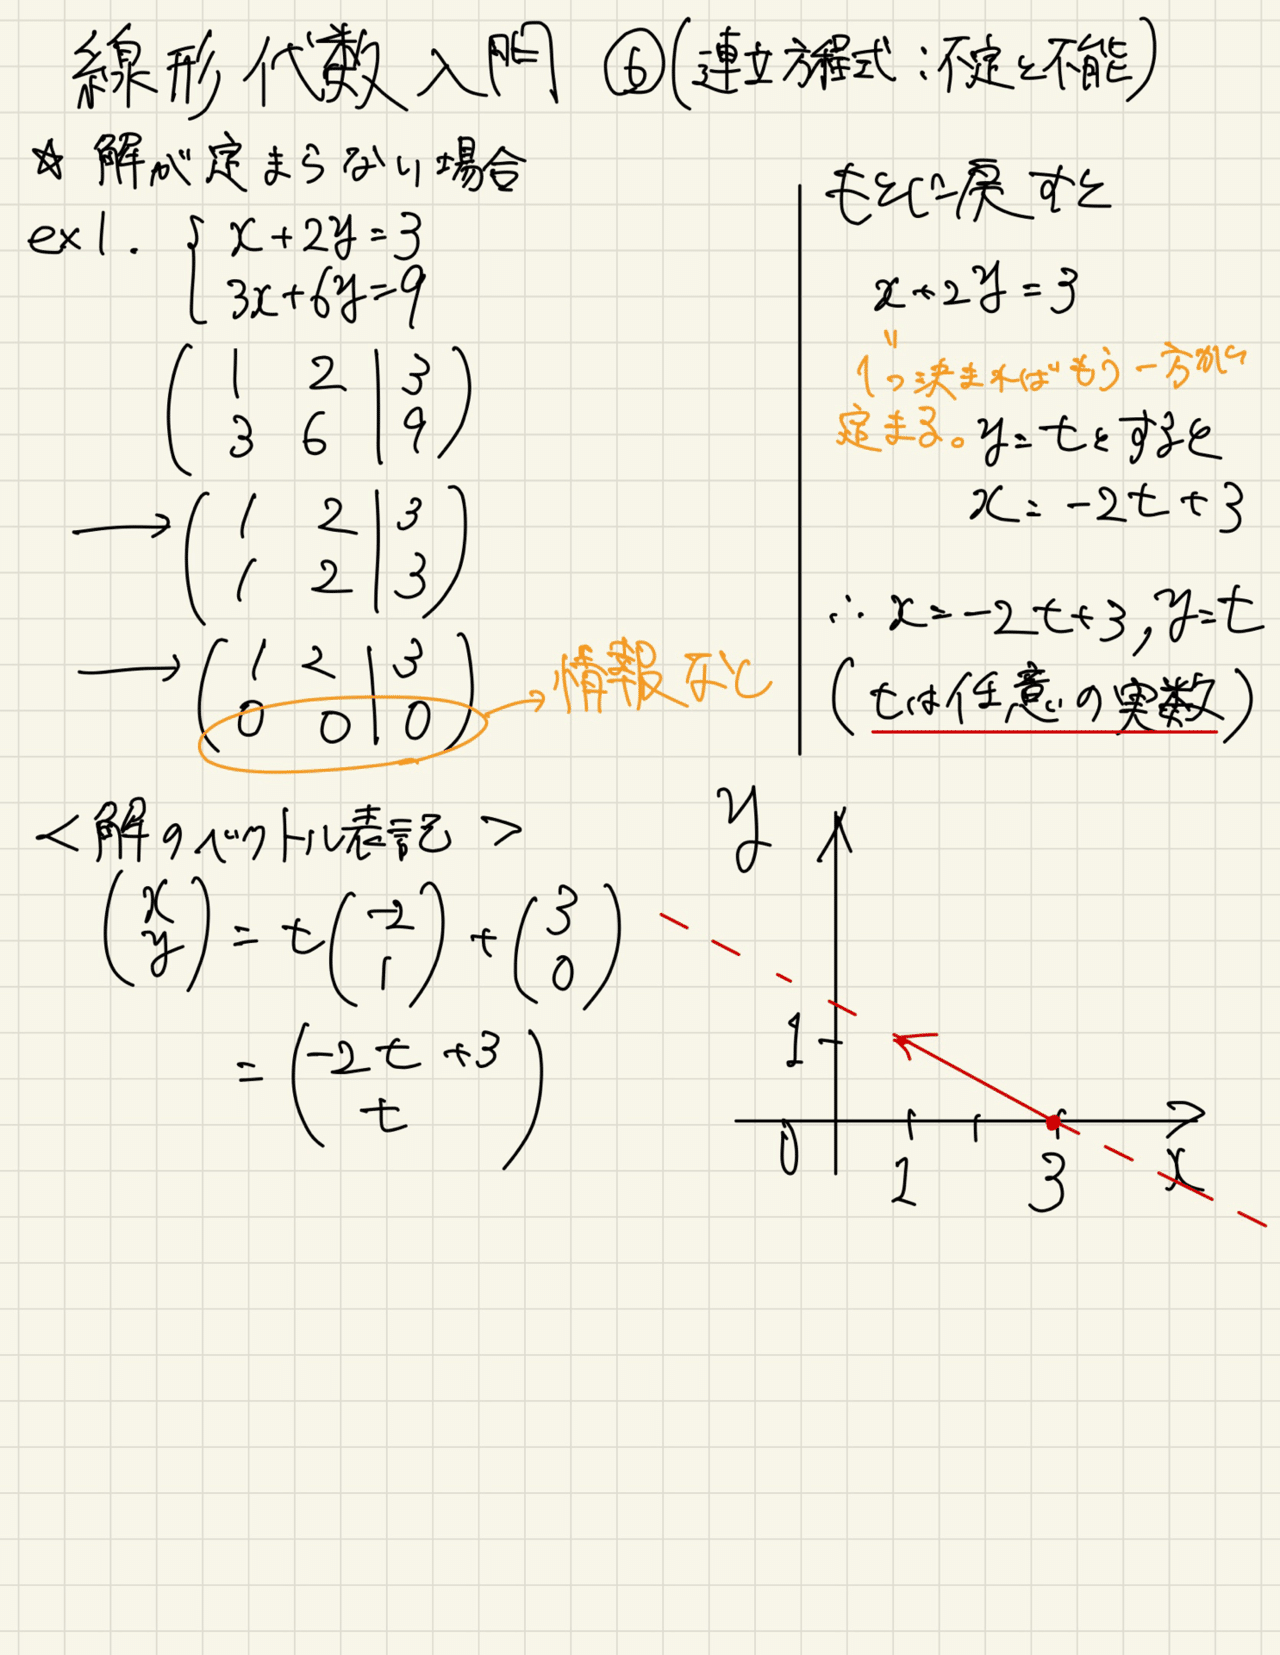 線形代数入門 ⑥(連立方程式:不定と不能)
☆ 解が定まらない場合
ex1. { x+2y=3
3x+6y=9
( 1 2 | 3 )
( 3 6 | 9 )
→ ( 1 2 | 3 )
( 1 2 | 3 )
→ ( 1 2 | 3 )
( 0 0 | 0 ) → 情報なし
もとに戻すと
x+2y=3
〃
1つ決まればもう一方が
定まる。 y=tとすると
x=-2t+3
∴ x=-2t+3, y=t
(tは任意の実数)
<解のベクトル表記>
(x y) = t(-2 1) + (3 0)
= (-2t+3 t)
y
1
0 1 3 x